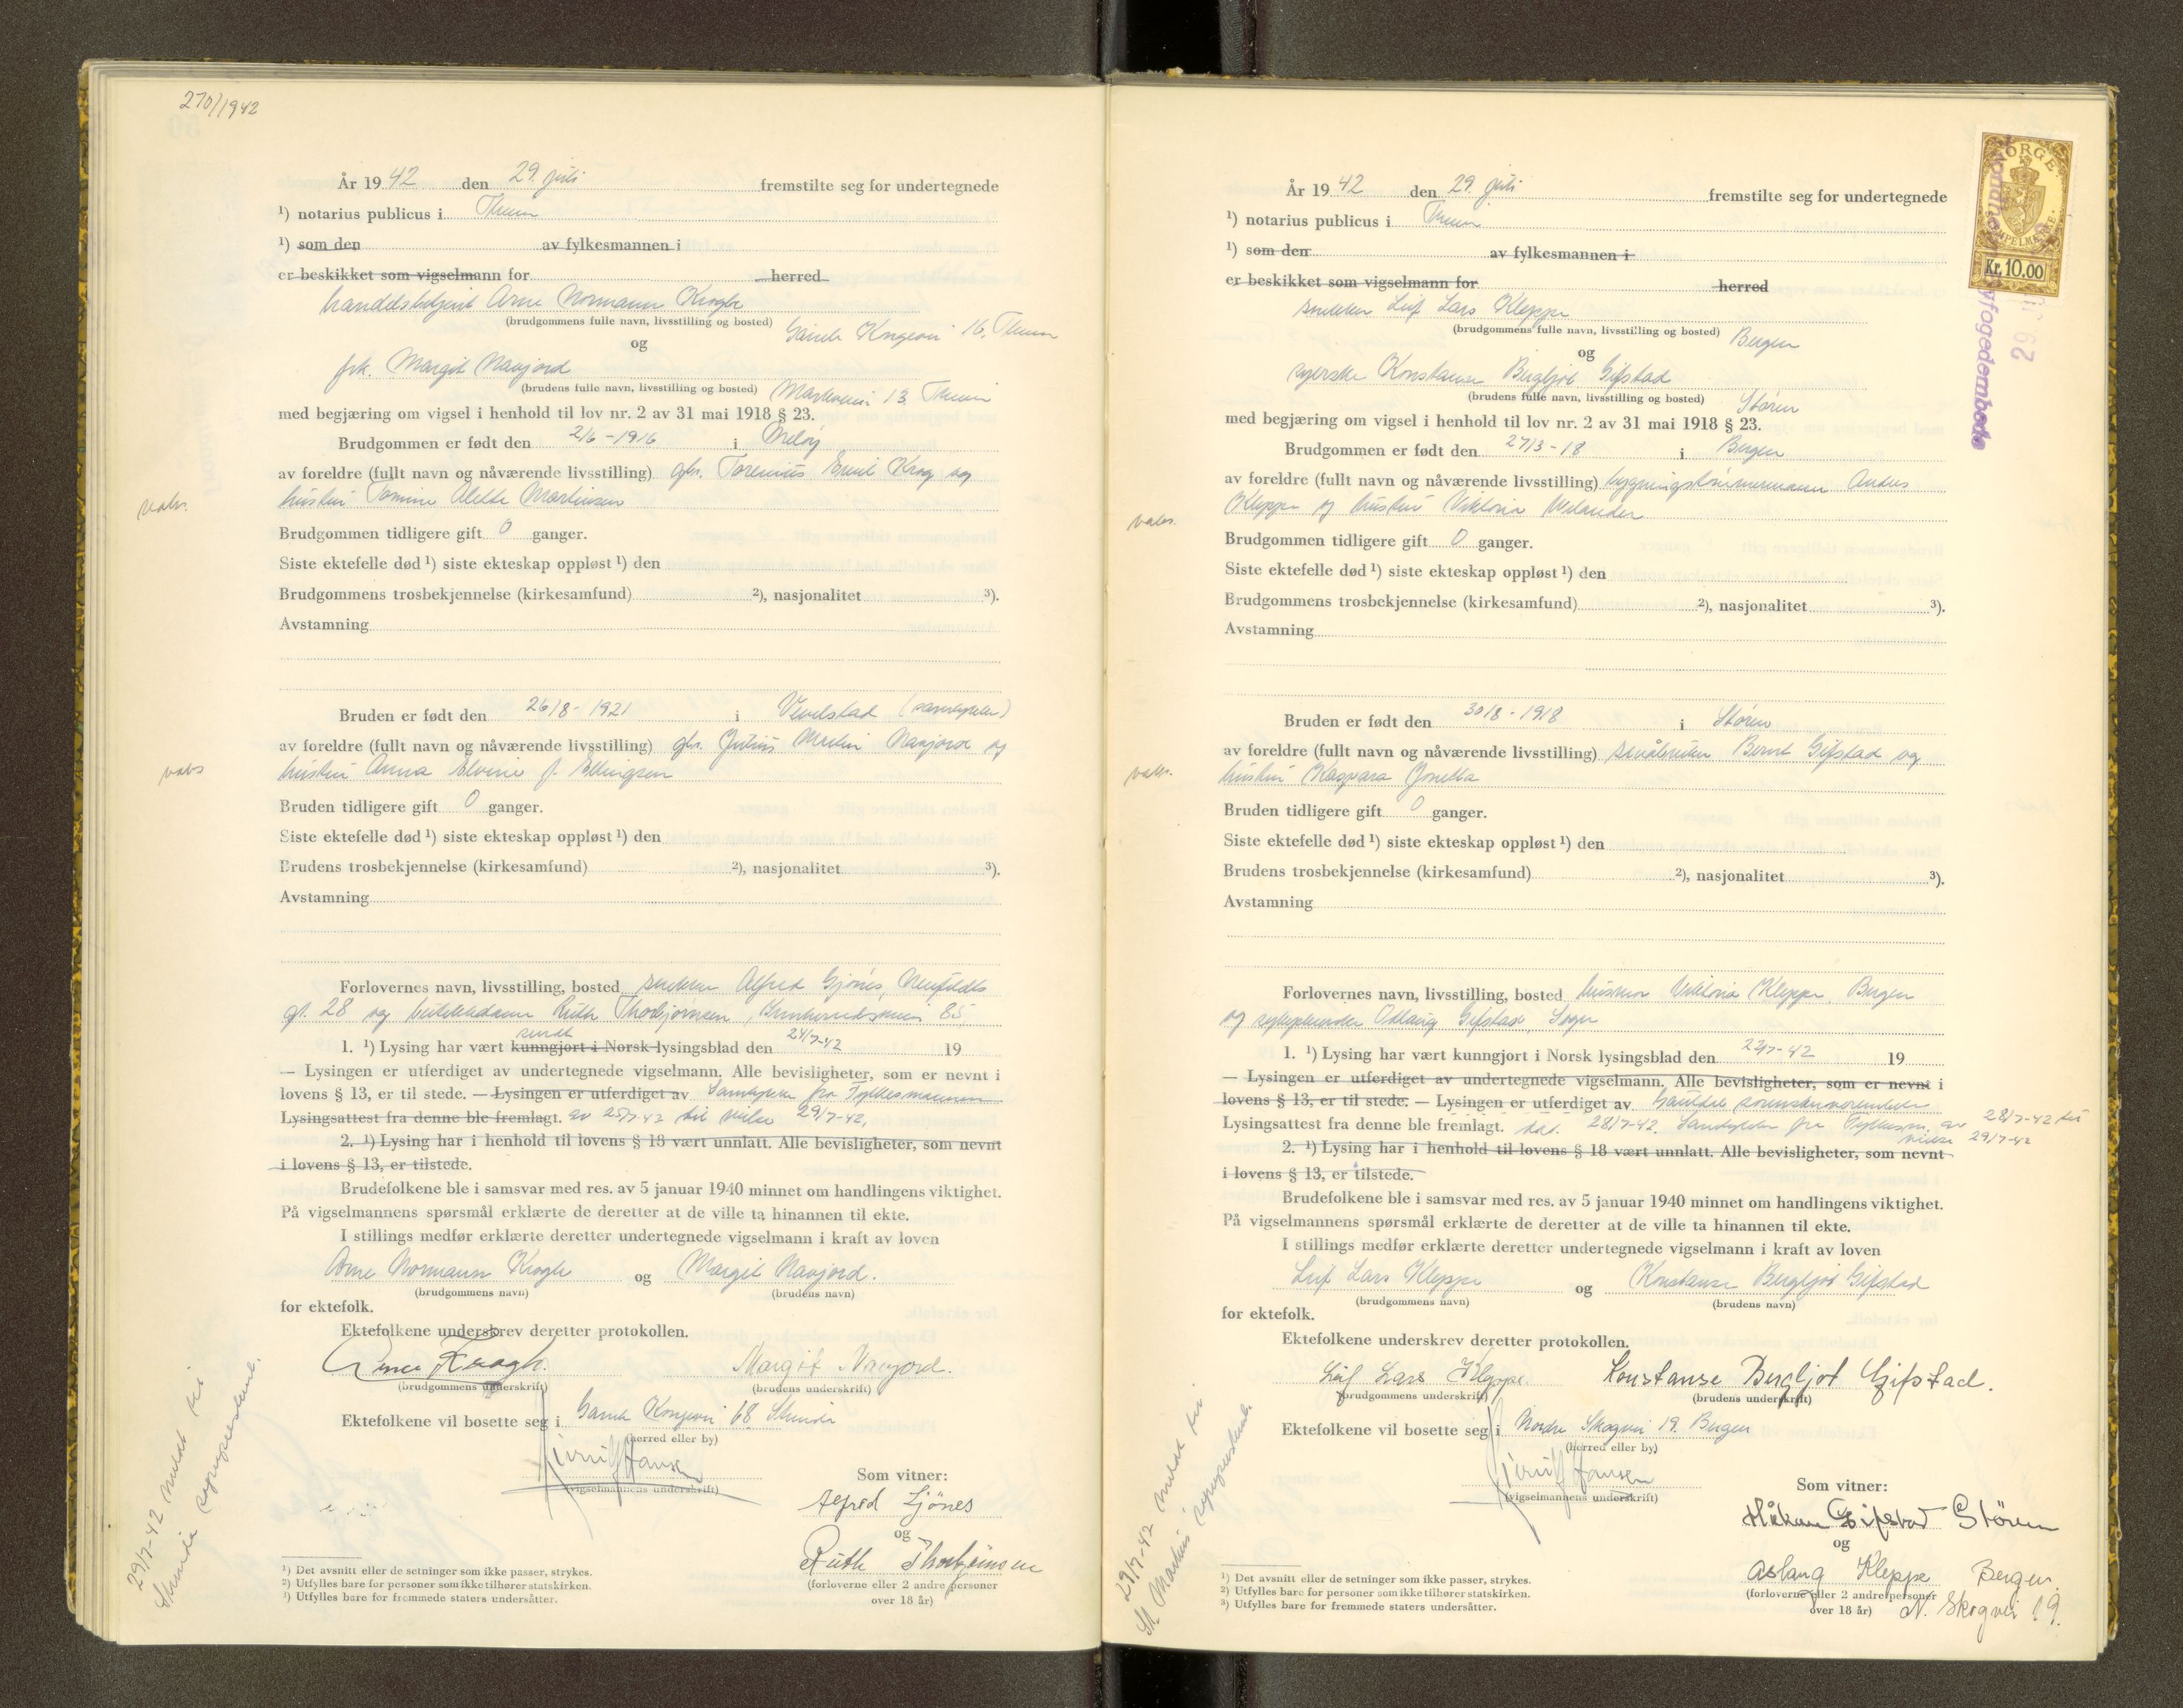 270/1942
År 1942 den 29. juli fremstilte seg for undertegnede
¹) notarius publicus i Theim
¹) som den av fylkesmannen i
er beskikket som vigselmann for herred
handelsbetjent Arne Normann Krogh
(brudgommens fulle navn, livsstilling og bosted) Gamle Kongevei 16, Theim
og
frk. Margit Navjord
(brudens fulle navn, livsstilling og bosted) 13. Theim
med begjæring om vigsel i henhold til lov nr. 2 av 31 mai 1918 § 23.
Brudgommen er født den 2/6-1916 i Meløy
av foreldre (fullt navn og nåværende livsstilling) gbr. Torenius Emil Krog og
hustru Tomine Alette Martinsen
vaks.
Brudgommen tidligere gift 0 ganger.
Siste ektefelle død ¹) siste ekteskap oppløst ¹) den
Brudgommens trosbekjennelse (kirkesamfund) ²), nasjonalitet ³).
Avstamning
Bruden er født den 26/8-1921 i Vevelstad (samtykke)
av foreldre (fullt navn og nåværende livsstilling) gbr. Julius Martin Navjord og
vaks
hustru Anna Elvine f. Ellingsen
Bruden tidligere gift 0 ganger.
Siste ektefelle død ¹) siste ekteskap oppløst ¹) den
Brudens trosbekjennelse (kirkesamfund) ²), nasjonalitet ³).
Avstamning
Forlovernes navn, livsstilling, bosted snekker Alfred Gjönes, Neufeldts
gt. 28 og Ruth Thorbjørnsen, 85
sendt
1. ¹) Lysing har vært kunngjort i Norsk lysingsblad den 24/7-42 19
— Lysingen er utferdiget av undertegnede vigselmann. Alle bevisligheter, som er nevnt i
lovens § 13, er til stede. — Lysingen er utferdiget av Samtykke fra Fylkesmannen
Lysingsattest fra denne ble fremlagt. av 25/7-42 til vielse 29/7-42,
2. ¹) Lysing har i henhold til lovens § 18 vært unnlatt. Alle bevisligheter, som nevnt
i lovens § 13, er tilstede.
Brudefolkene ble i samsvar med res. av 5 januar 1940 minnet om handlingens viktighet.
På vigselmannens spørsmål erklærte de deretter at de ville ta hinannen til ekte.
I stillings medfør erklærte deretter undertegnede vigselmann i kraft av loven
Arne Normann Krogh og Margit Navjord.
(brudgommens navn) (brudens navn)
for ektefolk.
Ektefolkene underskrev deretter protokollen.
Arne Krogh. Margit Navjord.
(brudgommens underskrift) (brudens underskrift)
Ektefolkene vil bosette seg i Gamle Kongevei 68 Strinda
(herred eller by)
Hansen
(vigselmannens underskrift)
Som vitner:
Alfred Gjönes
og
Ruth Thorbjørnsen
(forloverne eller 2 andre personer
over 18 år)
29/7-42 meldt til
Strinda sogneprestemb.
¹) Det avsnitt eller de setninger som ikke passer, strykes.
²) Utfylles bare for personer som ikke tilhører statskirken.
³) Utfylles bare for fremmede staters undersåtter.
NORGE
STEMPELMERKE
Kr. 10.00
Trondheim byfogedembede
29
År 1942 den 29. juli fremstilte seg for undertegnede
¹) notarius publicus i Theim
¹) som den av fylkesmannen i
er beskikket som vigselmann for herred
snekker Leif Lars Kleppe
(brudgommens fulle navn, livsstilling og bosted) Bergen
og
syerske Konstanse Bergljot Gifstad
(brudens fulle navn, livsstilling og bosted) Støren
med begjæring om vigsel i henhold til lov nr. 2 av 31 mai 1918 § 23.
Brudgommen er født den 27/3-18 i Bergen
av foreldre (fullt navn og nåværende livsstilling) bygningstømmermann Anders
Kleppe og hustru Viktoria Melander
vaks.
Brudgommen tidligere gift 0 ganger.
Siste ektefelle død ¹) siste ekteskap oppløst ¹) den
Brudgommens trosbekjennelse (kirkesamfund) ²), nasjonalitet ³).
Avstamning
Bruden er født den 30/8-1918 i Støren
av foreldre (fullt navn og nåværende livsstilling) småbruker Bernt Gifstad og
vaks.
hustru Kaspara Jonetta
Bruden tidligere gift 0 ganger.
Siste ektefelle død ¹) siste ekteskap oppløst ¹) den
Brudens trosbekjennelse (kirkesamfund) ²), nasjonalitet ³).
Avstamning
Forlovernes navn, livsstilling, bosted husmor Viktoria Kleppe, Bergen
og Oddlaug Gifstad,
1. ¹) Lysing har vært kunngjort i Norsk lysingsblad den 22/7-42 19
— Lysingen er utferdiget av undertegnede vigselmann. Alle bevisligheter, som er nevnt i
lovens § 13, er til stede. — Lysingen er utferdiget av Gauldal sorenskriverembete
Lysingsattest fra denne ble fremlagt. dat. 28/7-42. Samtykke fra Fylkesm. av 28/7-42 til
vielse 29/7-42
2. ¹) Lysing har i henhold til lovens § 18 vært unnlatt. Alle bevisligheter, som nevnt
i lovens § 13, er tilstede.
Brudefolkene ble i samsvar med res. av 5 januar 1940 minnet om handlingens viktighet.
På vigselmannens spørsmål erklærte de deretter at de ville ta hinannen til ekte.
I stillings medfør erklærte deretter undertegnede vigselmann i kraft av loven
Leif Lars Kleppe og Konstanse Bergljot Gifstad
(brudgommens navn) (brudens navn)
for ektefolk.
Ektefolkene underskrev deretter protokollen.
Leif Lars Kleppe. Konstanse Bergljot Gifstad.
(brudgommens underskrift) (brudens underskrift)
Ektefolkene vil bosette seg i Nordre Skogvei 19. Bergen
(herred eller by)
Hansen
(vigselmannens underskrift)
Som vitner:
Håkon Gifstad Støren
og
Aslaug Kleppe Bergen.
(forloverne eller 2 andre personer
over 18 år) N. Skogvei 19.
29/7-42 meldt til
St. Markus sogneprestemb.
¹) Det avsnitt eller de setninger som ikke passer, strykes.
²) Utfylles bare for personer som ikke tilhører statskirken.
³) Utfylles bare for fremmede staters undersåtter.